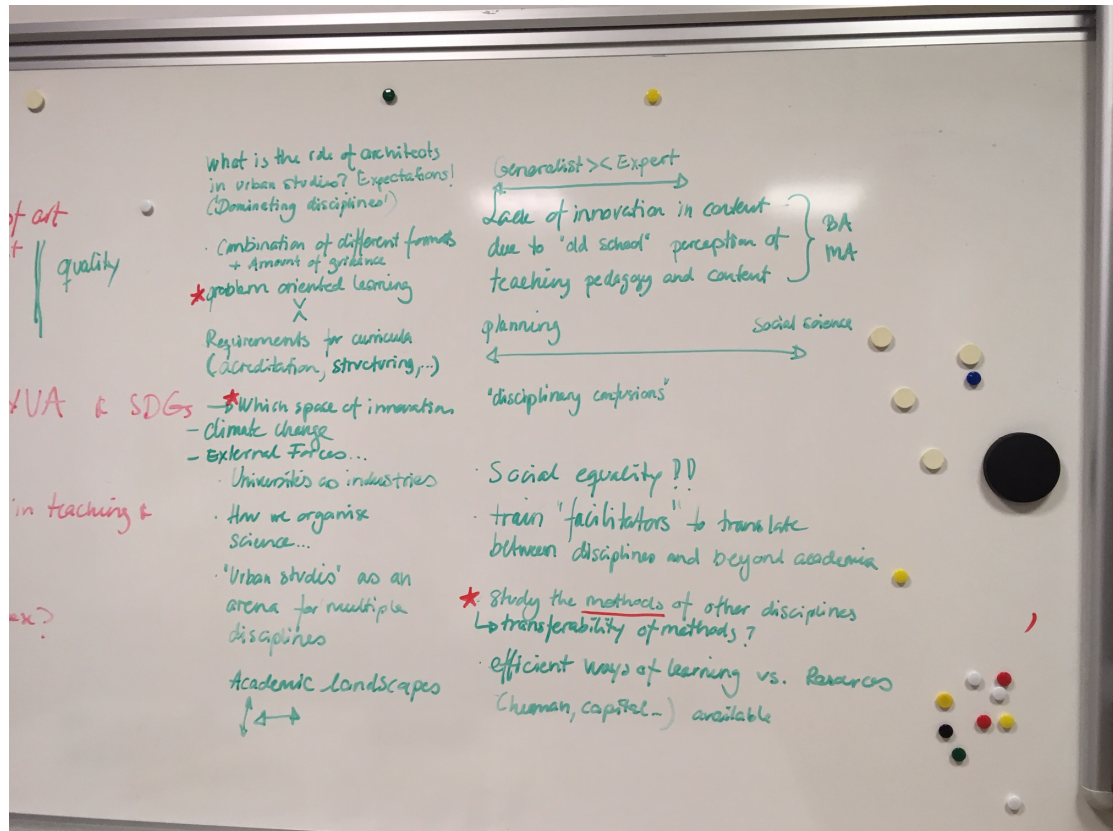 of art
quality
VUA & SDGs
in teaching &
ex?
What is the role of architects
in urban studies? Expectations!
('Dominating disciplines')
· Combination of different formats
+ Amount of guidance
* problem oriented learning
> <
Requirements for curricula
(acreditation, structuring,..)
→ * Which space of innovation
- climate change
- External Forces...
· Universities as industries
· How we organise
science...
· 'Urban studies' as an
arena for multiple
disciplines
Academic landscapes
Generalist >< Expert
Lack of innovation in content
due to "old school" perception of
teaching pedagogy and content
BA
MA
planning
Social science
"disciplinary confusions"
· Social equality !!
· train "facilitators" to translate
between disciplines and beyond academia
* · Study the methods of other disciplines
↳ transferability of methods?
· efficient ways of learning vs. Resources
(human, capital..) available